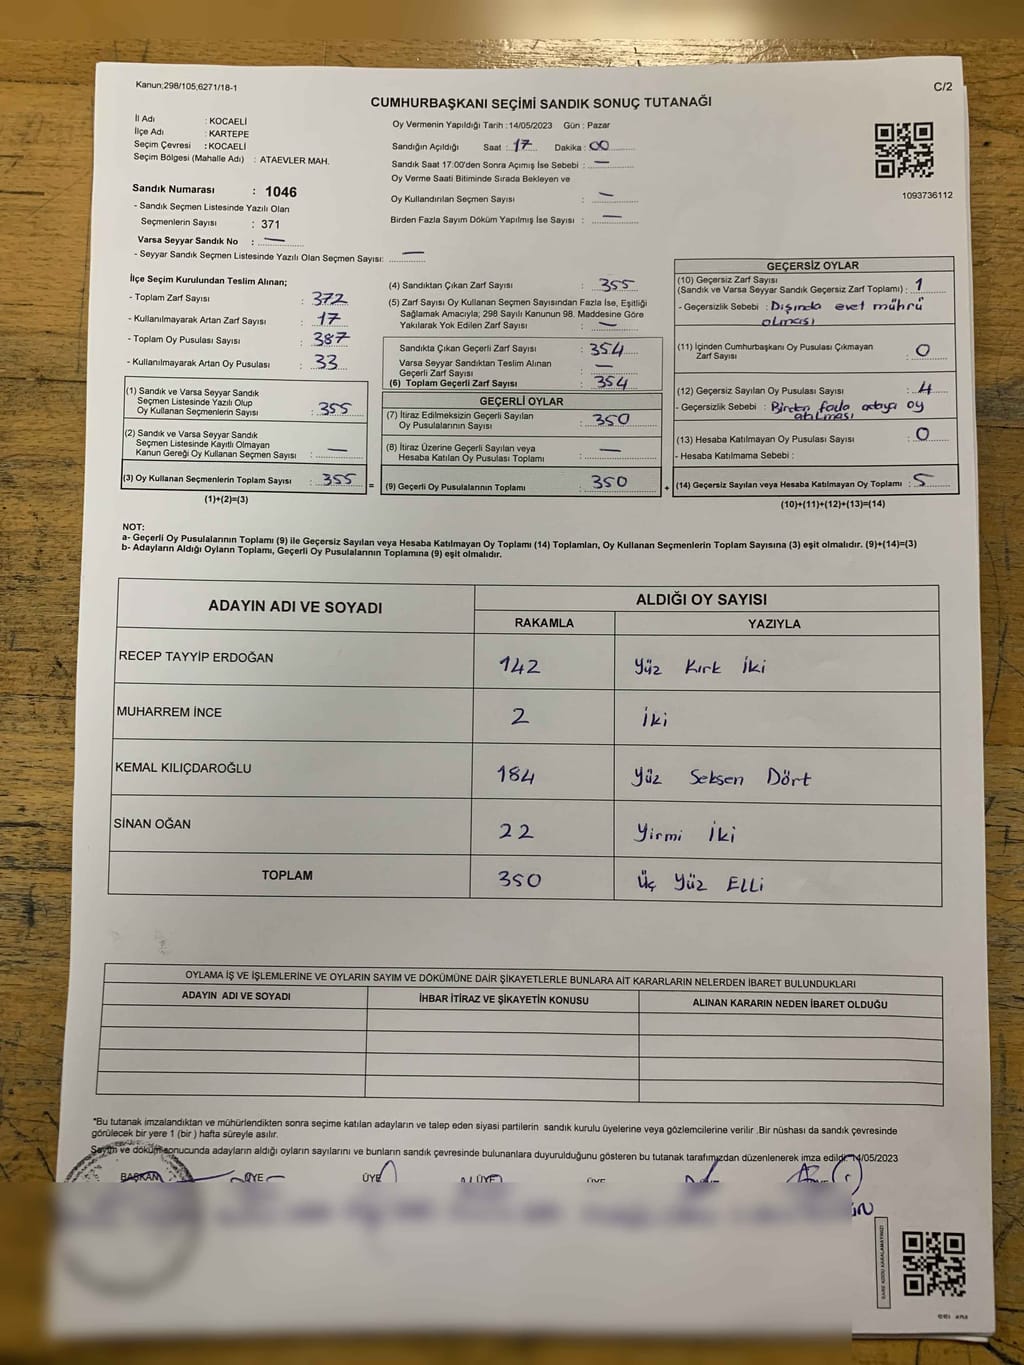 Kanun;298/105,6271/18-1
C/2
CUMHURBAŞKANI SEÇİMİ SANDIK SONUÇ TUTANAĞI
İl Adı : KOCAELİ
İlçe Adı : KARTEPE
Seçim Çevresi : KOCAELİ
Seçim Bölgesi (Mahalle Adı) : ATAEVLER MAH.
Oy Vermenin Yapıldığı Tarih : 14/05/2023 Gün : Pazar
Sandığın Açıldığı Saat : 17 Dakika : 00
Sandık Saat 17:00'den Sonra Açımış İse Sebebi : —
Oy Verme Saati Bitiminde Sırada Bekleyen ve
Oy Kullandırılan Seçmen Sayısı : —
Birden Fazla Sayım Döküm Yapılmış İse Sayısı : —
1093736112
Sandık Numarası : 1046
- Sandık Seçmen Listesinde Yazılı Olan
Seçmenlerin Sayısı : 371
Varsa Seyyar Sandık No : —
- Seyyar Sandık Seçmen Listesinde Yazılı Olan Seçmen Sayısı: —
İlçe Seçim Kurulundan Teslim Alınan;
- Toplam Zarf Sayısı : 372
- Kullanılmayarak Artan Zarf Sayısı : 17
- Toplam Oy Pusulası Sayısı : 387
- Kullanılmayarak Artan Oy Pusulası : 33
(1) Sandık ve Varsa Seyyar Sandık
Seçmen Listesinde Yazılı Olup
Oy Kullanan Seçmenlerin Sayısı : 355
(2) Sandık ve Varsa Seyyar Sandık
Seçmen Listesinde Kayıtlı Olmayan
Kanun Gereği Oy Kullanan Seçmen Sayısı : —
(3) Oy Kullanan Seçmenlerin Toplam Sayısı : 355
(1)+(2)=(3)
(4) Sandıktan Çıkan Zarf Sayısı : 355
(5) Zarf Sayısı Oy Kullanan Seçmen Sayısından Fazla İse, Eşitliği
Sağlamak Amacıyla; 298 Sayılı Kanunun 98. Maddesine Göre
Yakılarak Yok Edilen Zarf Sayısı : —
Sandıkta Çıkan Geçerli Zarf Sayısı : 354
Varsa Seyyar Sandıktan Teslim Alınan
Geçerli Zarf Sayısı : —
(6) Toplam Geçerli Zarf Sayısı : 354
GEÇERLİ OYLAR
(7) İtiraz Edilmeksizin Geçerli Sayılan
Oy Pusulalarının Sayısı : 350
(8) İtiraz Üzerine Geçerli Sayılan veya
Hesaba Katılan Oy Pusulası Toplamı : —
= (9) Geçerli Oy Pusulalarının Toplamı : 350 +
GEÇERSİZ OYLAR
(10) Geçersiz Zarf Sayısı
(Sandık ve Varsa Seyyar Sandık Geçersiz Zarf Toplamı) : 1
- Geçersizlik Sebebi : Dışında evet mührü
olması
(11) İçinden Cumhurbaşkanı Oy Pusulası Çıkmayan
Zarf Sayısı : 0
(12) Geçersiz Sayılan Oy Pusulası Sayısı : 4
- Geçersizlik Sebebi : Birden fazla adaya oy
atılması
(13) Hesaba Katılmayan Oy Pusulası Sayısı : 0
- Hesaba Katılmama Sebebi :
(14) Geçersiz Sayılan veya Hesaba Katılmayan Oy Toplamı : 5
(10)+(11)+(12)+(13)=(14)
NOT:
a- Geçerli Oy Pusulalarının Toplamı (9) ile Geçersiz Sayılan veya Hesaba Katılmayan Oy Toplamı (14) Toplamları, Oy Kullanan Seçmenlerin Toplam Sayısına (3) eşit olmalıdır. (9)+(14)=(3)
b- Adayların Aldığı Oyların Toplamı, Geçerli Oy Pusulalarının Toplamına (9) eşit olmalıdır.
ADAYIN ADI VE SOYADI ALDIĞI OY SAYISI
RAKAMLA YAZIYLA
RECEP TAYYİP ERDOĞAN 142 Yüz Kırk İki
MUHARREM İNCE 2 İki
KEMAL KILIÇDAROĞLU 184 Yüz Seksen Dört
SİNAN OĞAN 22 Yirmi İki
TOPLAM 350 Üç Yüz Elli
OYLAMA İŞ VE İŞLEMLERİNE VE OYLARIN SAYIM VE DÖKÜMÜNE DAİR ŞİKAYETLERLE BUNLARA AİT KARARLARIN NELERDEN İBARET BULUNDUKLARI
ADAYIN ADI VE SOYADI İHBAR İTİRAZ VE ŞİKAYETİN KONUSU ALINAN KARARIN NEDEN İBARET OLDUĞU
*Bu tutanak imzalandıktan ve mühürlendikten sonra seçime katılan adayların ve talep eden siyasi partilerin sandık kurulu üyelerine veya gözlemcilerine verilir .Bir nüshası da sandık çevresinde
görülecek bir yere 1 (bir ) hafta süreyle asılır.
Sayım ve döküm sonucunda adayların aldığı oyların sayılarını ve bunların sandık çevresinde bulunanlara duyurulduğunu gösteren bu tutanak tarafımızdan düzenlenerek imza edildi. 14/05/2023
BAŞKAN ÜYE ÜYE ÜYE ÜYE